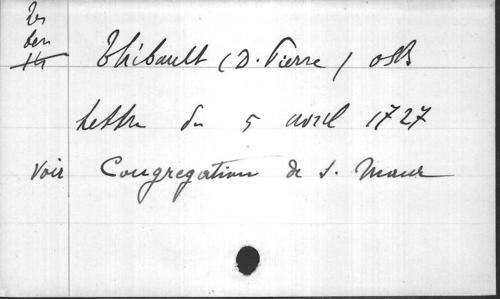 Thibault (D. Pierre) OSB
Lettre du 5 avril 1727
Voir Congregation de S. Maur